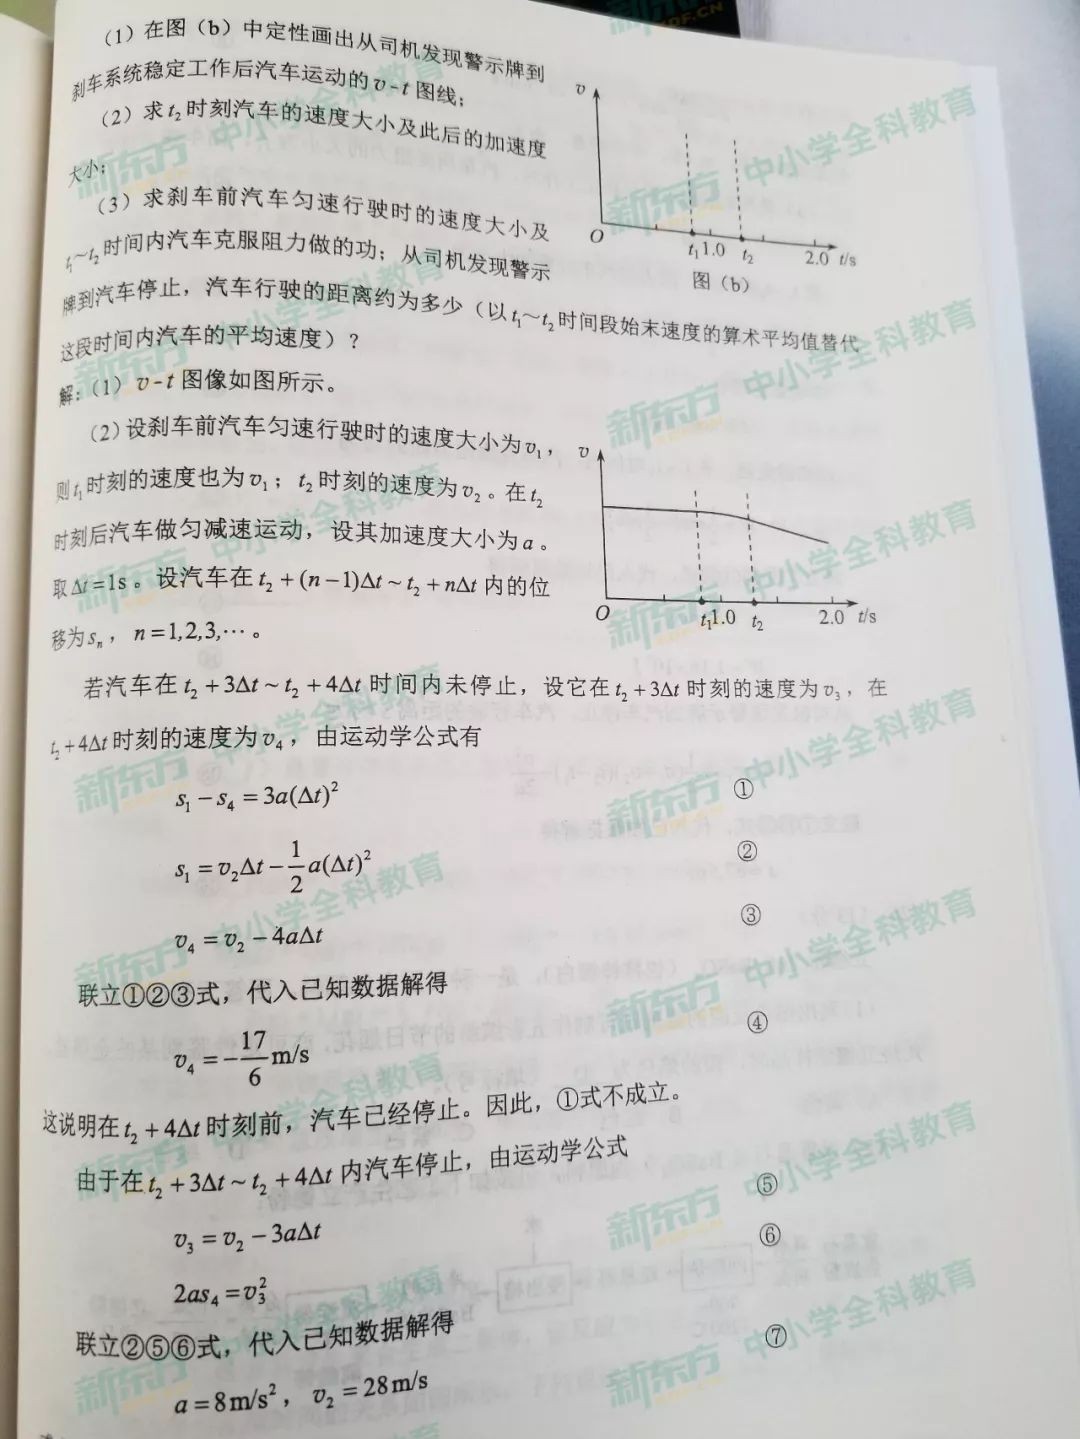 （1）在图（b）中定性画出从司机发现警示牌到
刹车系统稳定工作后汽车运动的v-t图线；
（2）求t₂时刻汽车的速度大小及此后的加速度
大小；
（3）求刹车前汽车匀速行驶时的速度大小及
t₁~t₂时间内汽车克服阻力做的功；从司机发现警示
牌到汽车停止，汽车行驶的距离约为多少（以t₁~t₂时间段始末速度的算术平均值替代
这段时间内汽车的平均速度）？
v
O
t₁ 1.0 t₂ 2.0 t/s
图（b）
解：（1）v-t图像如图所示。
（2）设刹车前汽车匀速行驶时的速度大小为v₁，
则t₁时刻的速度也为v₁；t₂时刻的速度为v₂。在t₂
时刻后汽车做匀减速运动，设其加速度大小为a。
取Δt=1s。设汽车在t₂+(n-1)Δt~t₂+nΔt内的位
移为sₙ，n=1,2,3,…。
v
O
t₁ 1.0 t₂ 2.0 t/s
若汽车在t₂+3Δt~t₂+4Δt时间内未停止，设它在t₂+3Δt时刻的速度为v₃，在
t₂+4Δt时刻的速度为v₄，由运动学公式有
s₁-s₄=3a(Δt)² ①
s₁=v₂Δt-1/2a(Δt)² ②
v₄=v₂-4aΔt ③
联立①②③式，代入已知数据解得
v₄=-17/6m/s ④
这说明在t₂+4Δt时刻前，汽车已经停止。因此，①式不成立。
由于在t₂+3Δt~t₂+4Δt内汽车停止，由运动学公式
v₃=v₂-3aΔt ⑤
2as₄=v₃² ⑥
联立②⑤⑥式，代入已知数据解得
a=8m/s²，v₂=28m/s ⑦
新东方 中小学全科教育